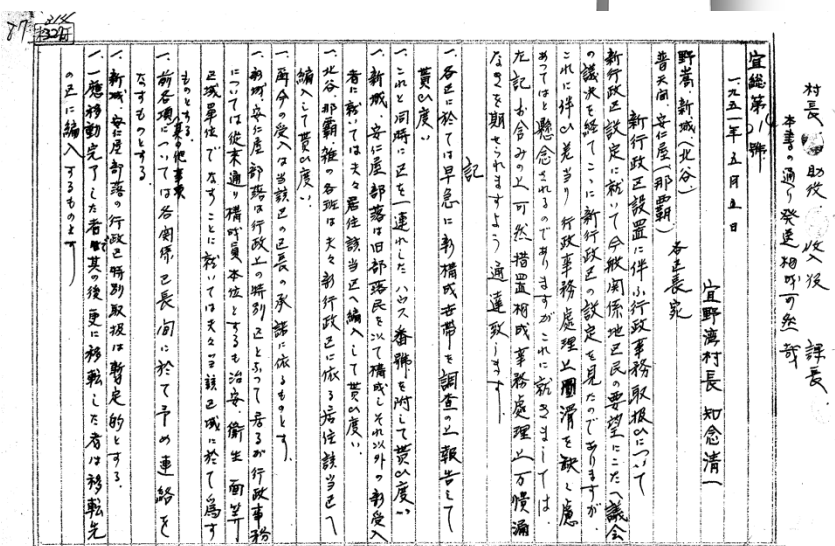 村長 助役 收入役 課長
本書の通り発送相成可然哉
宜総第 號
一九五一年五月五日
宜野湾村長 知念清一
野嵩、新城(北谷)、
普天間、安仁屋(那覇) 各区長宛
新行政区設置に伴ふ行政事務取扱ひについて
新行政区設定に就いて今般関係地区民の要望にこたへ議会
の議決を経てこゝに新行政区の設定を見たのでありますが、
これに伴ひ差当り行政事務処理上圓滑を缺く虞
あつてはと懸念されるのでありますがこれに就きましては、
左記お含みの上可然措置相成事務處理上万憤漏
なきを期せられますよう通達致します。
記
一、各区に於ては早急に新構成世帯を調査の上報告して
貰ひ度い
一、これと同時に区を一連れしたハウス番號を附して貰ひ度い
一、新城、安仁屋部落は旧部落民を以て構成しそれ以外の新受入
者に就いては夫々居住該当区へ編入して貰ひ度い、
一、北谷、那覇雑の各班は夫々新行政区に依る居住該当区へ
編入して貰ひ度い、
一、再今の受入は当該区の区長の承諾に依るものとす、
一、新城、安仁屋部落は行政上の特別区となつて居るが行政事務
については従来通り構成員本位とするも治安、衛生面等
区域單位でなすことに就いては夫々当該区域に於て為す
ものとする、
一、前各項其の他事項については各関係区長間に於て予め連絡を
なすものとする、
一、新城、安仁屋部落の行政区特別取扱は暫定的とする、
一、一應移動完了した者で其の後更に移転した者は移転先
の区に編入するものとす